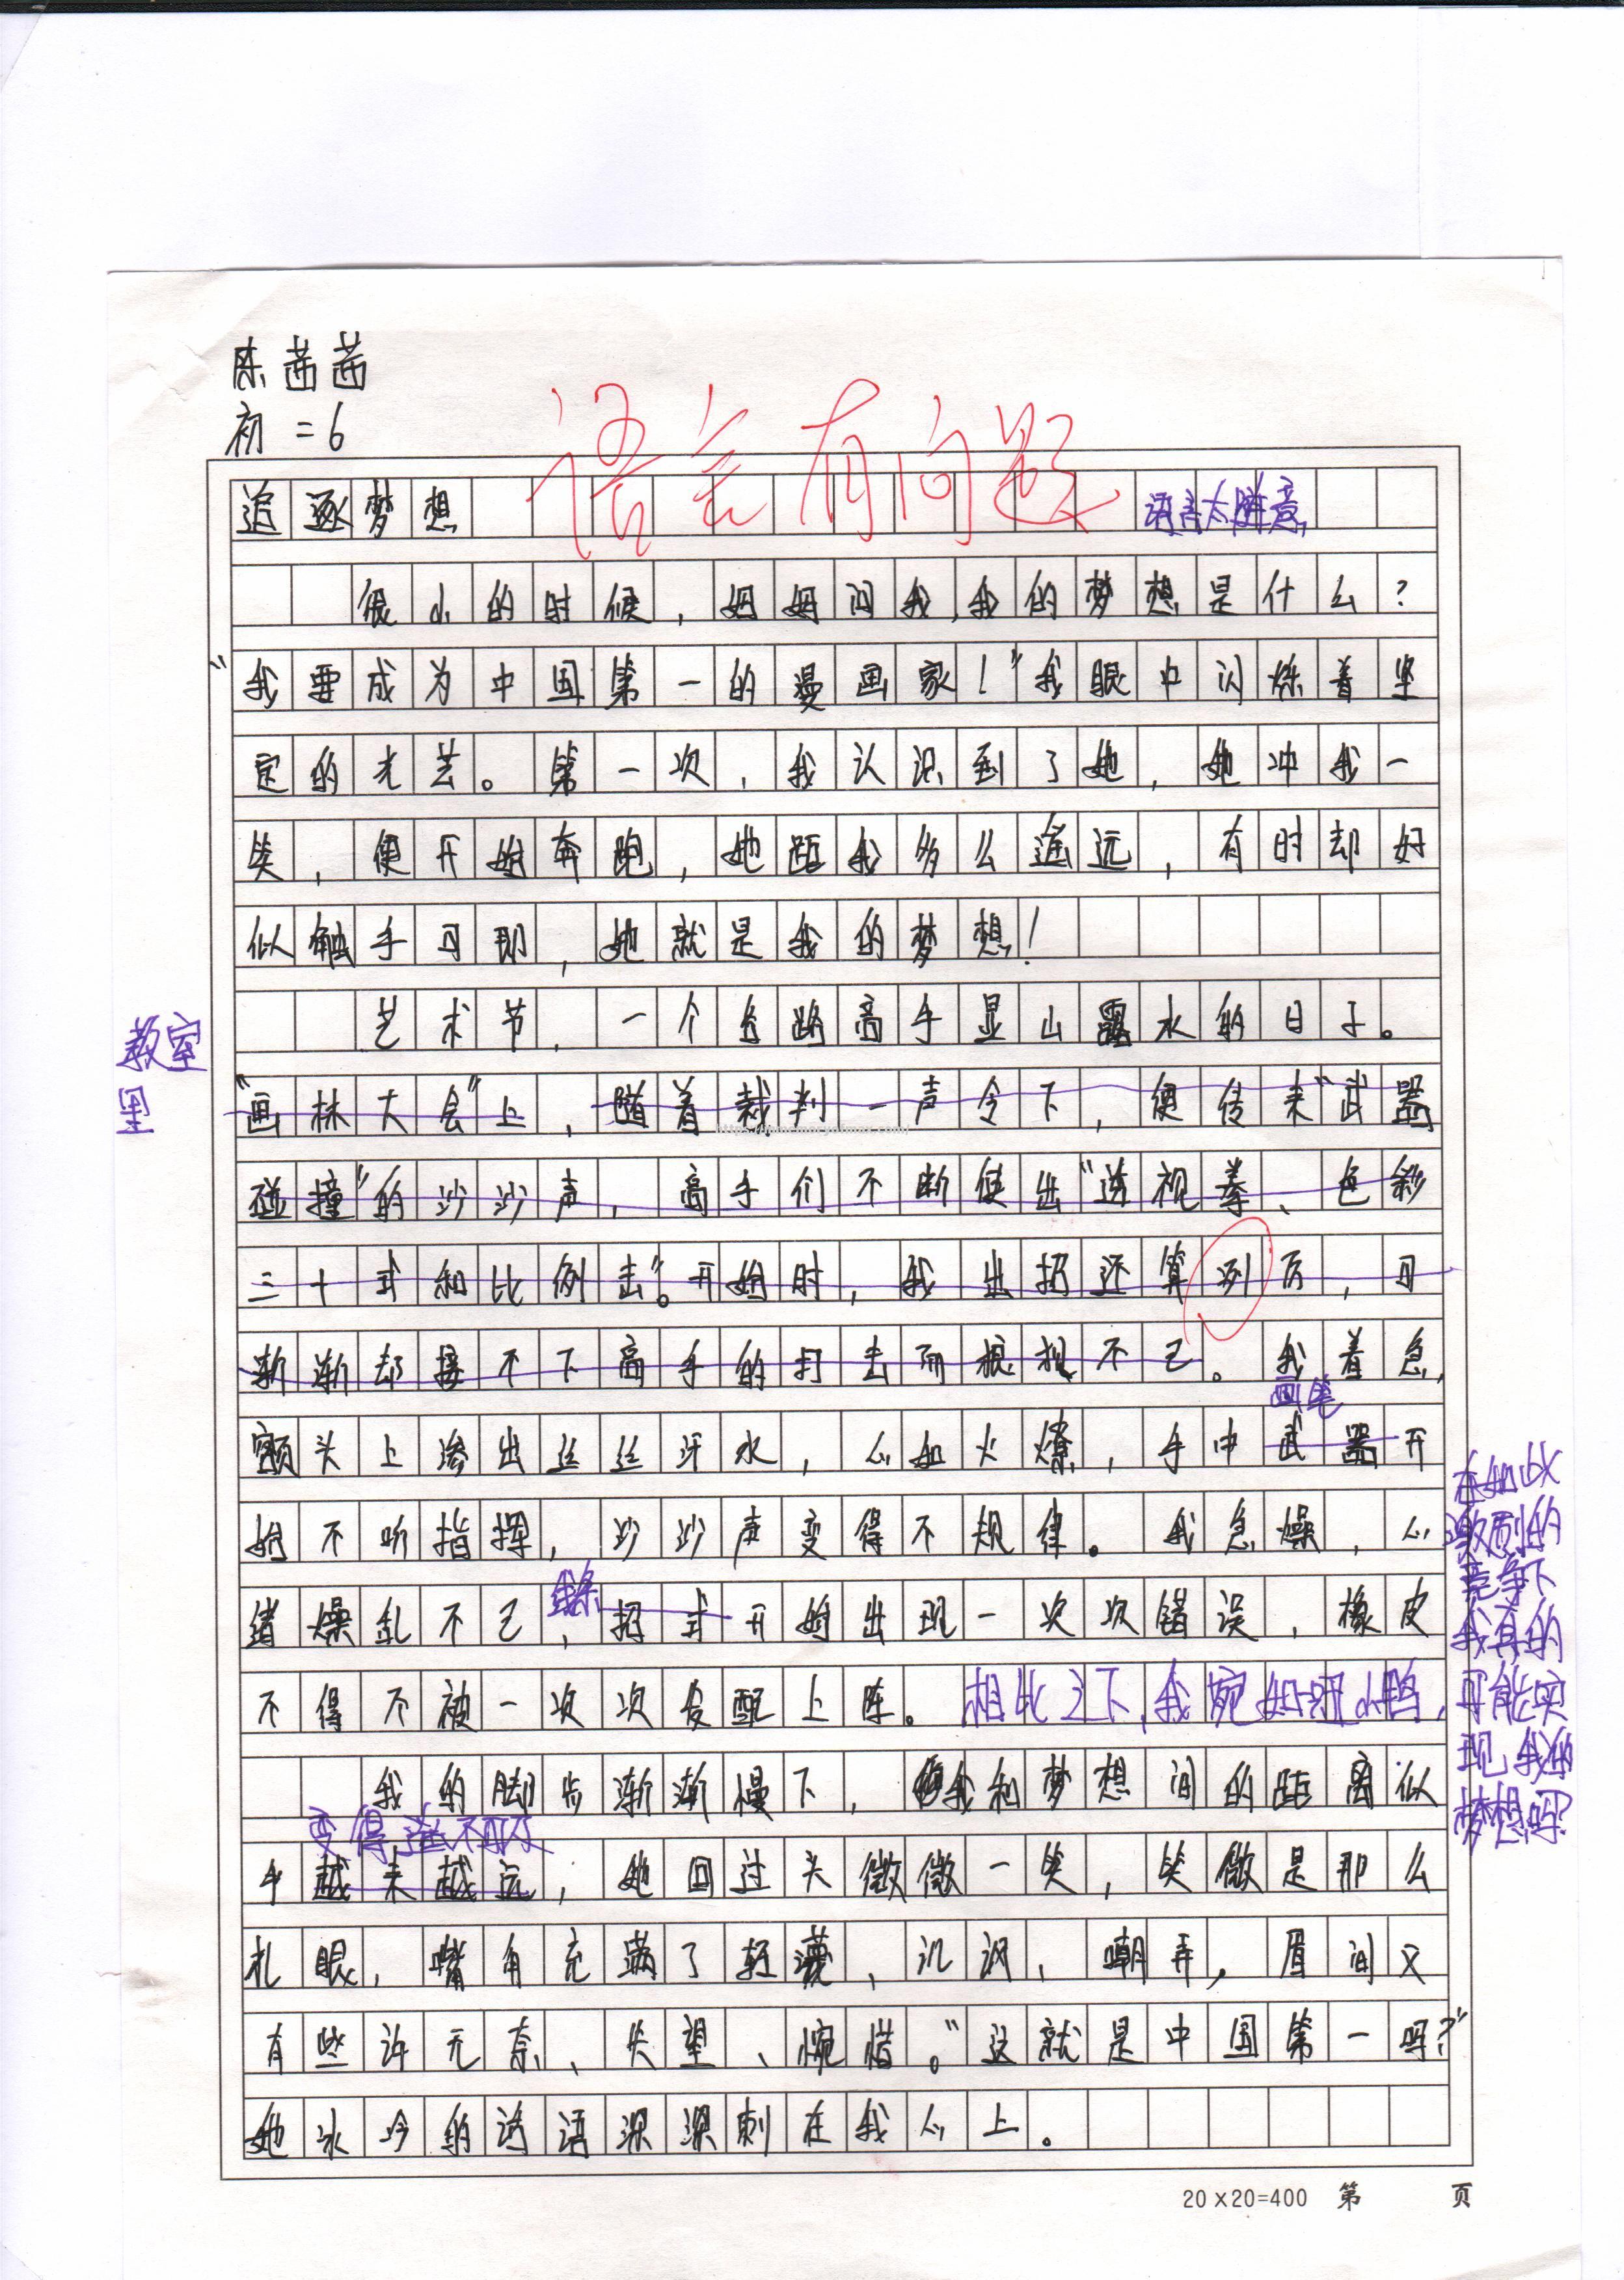 陈茜茜
初二6
语言有问题
追逐梦想
语言太随意
很小的时候，妈妈问我，我的梦想是什么？
“我要成为中国第一的漫画家！”我眼中闪烁着坚
定的光芒。第一次，我认识到了她，她冲我一
笑，便开始奔跑，她距我多么遥远，有时却好
似触手可即，她就是我的梦想！
艺术节，一个各路高手显山露水的日子。
教室
里
“画林大会”上，随着裁判一声令下，便传来“武器
碰撞”的沙沙声，高手们不断使出“透视拳、色彩
三十式和比例击”。开始时，我出招还算洌厉，可
渐渐却接不下高手的打击而狼狈不已。我着急，
画笔
额头上渗出丝丝汗水，心如火燎，手中武器开
始不听指挥，沙沙声变得不规律。我急燥，心
线条
绪燥乱不已，招式开始出现一次次错误，橡皮
不得不被一次次发配上阵。相比之下，我宛如丑小鸭，
在如此
激烈的
竞争下
我真的
可能实
现我的
梦想吗？
我的脚步渐渐慢下，我和梦想间的距离似
变得遥不可及
乎越来越远，她回过头微微一笑，笑微是那么
扎眼，嘴角充满了轻蔑、讥讽、嘲弄，眉间又
有些许无奈、失望、惋惜。“这就是中国第一吗？”
她冰冷的话语深深刺在我心上。
20×20=400 第 页